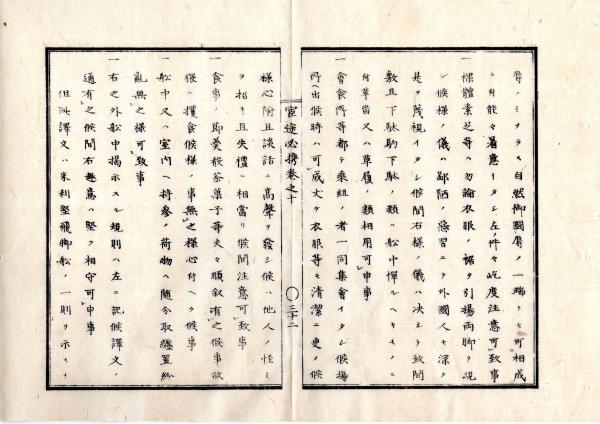 辱ノミナラス自然御國辱ノ一端トモ可相成
ニ付能々着意イタシ左ノ件々屹度注意可致事
一裸體素足等ハ勿論衣服ノ裾ヲ引揚両脚ヲ現
シ候様ノ儀ハ鄙陋ノ惡習ニテ外國人モ深ク
是ヲ蔑視イタシ候間右様ノ儀ハ決シテ致間
敷且下駄駒下駄ノ類ハ船中憚ルヘキモノニ
付草沓又ハ草履ノ類相用可申事
一會食所等都テ乗組ノ者一同集會イタシ候場
所ヘ出候時ハ可成丈ケ衣服等モ清潔ニ更メ候
宦途必携巻之十
〇三十二
様心附且談話ニ高聲ヲ發シ候ハ他人ノ怪ミ
ヲ招キ且失禮ニ相當リ候間注意可致事
一食事ノ節羮飯茶菓子等夫々順叙有之候事故
猥ニ攫食候様ノ事無之様心付ヘク候事
一船中又ハ室内ヘ持参ノ荷物ハ随分取纏置紛
亂無之様可致事
一右之外船中揭示スル規則ハ左ニ記候譯文ノ
通有之候間右趣意ハ堅ク相守可申事
但此譯文ハ米利堅飛脚船ノ一則ヲ示セ